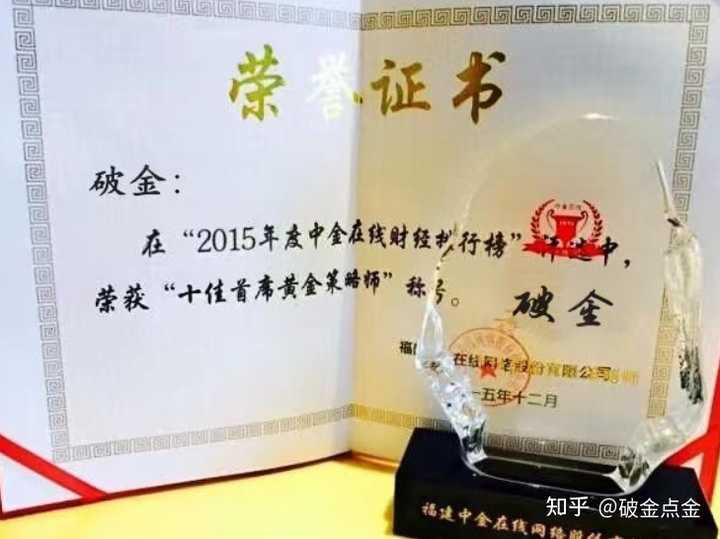 荣誉证书
破金：
在“2015年度中金在线财经排行榜”评选中，
荣获“十佳首席黄金策略师”称号。
破金
福 在线网络股份有限公司
一五年十二月
福建中金在线网络股份
知乎 @破金点金